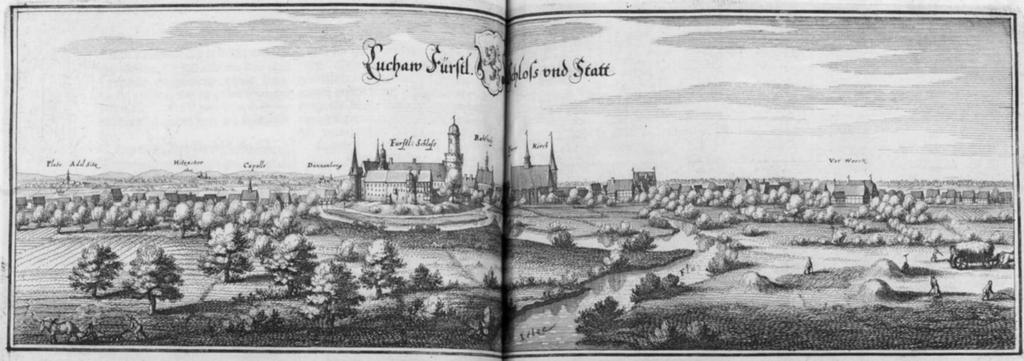 Luchaw Fürstl. Schloss vnd Statt
Plate Adel Sitz
Hitzacker
Capelle
Dannenberg
Furstl: Schloss
Kirch
Vor Werck
Fl.